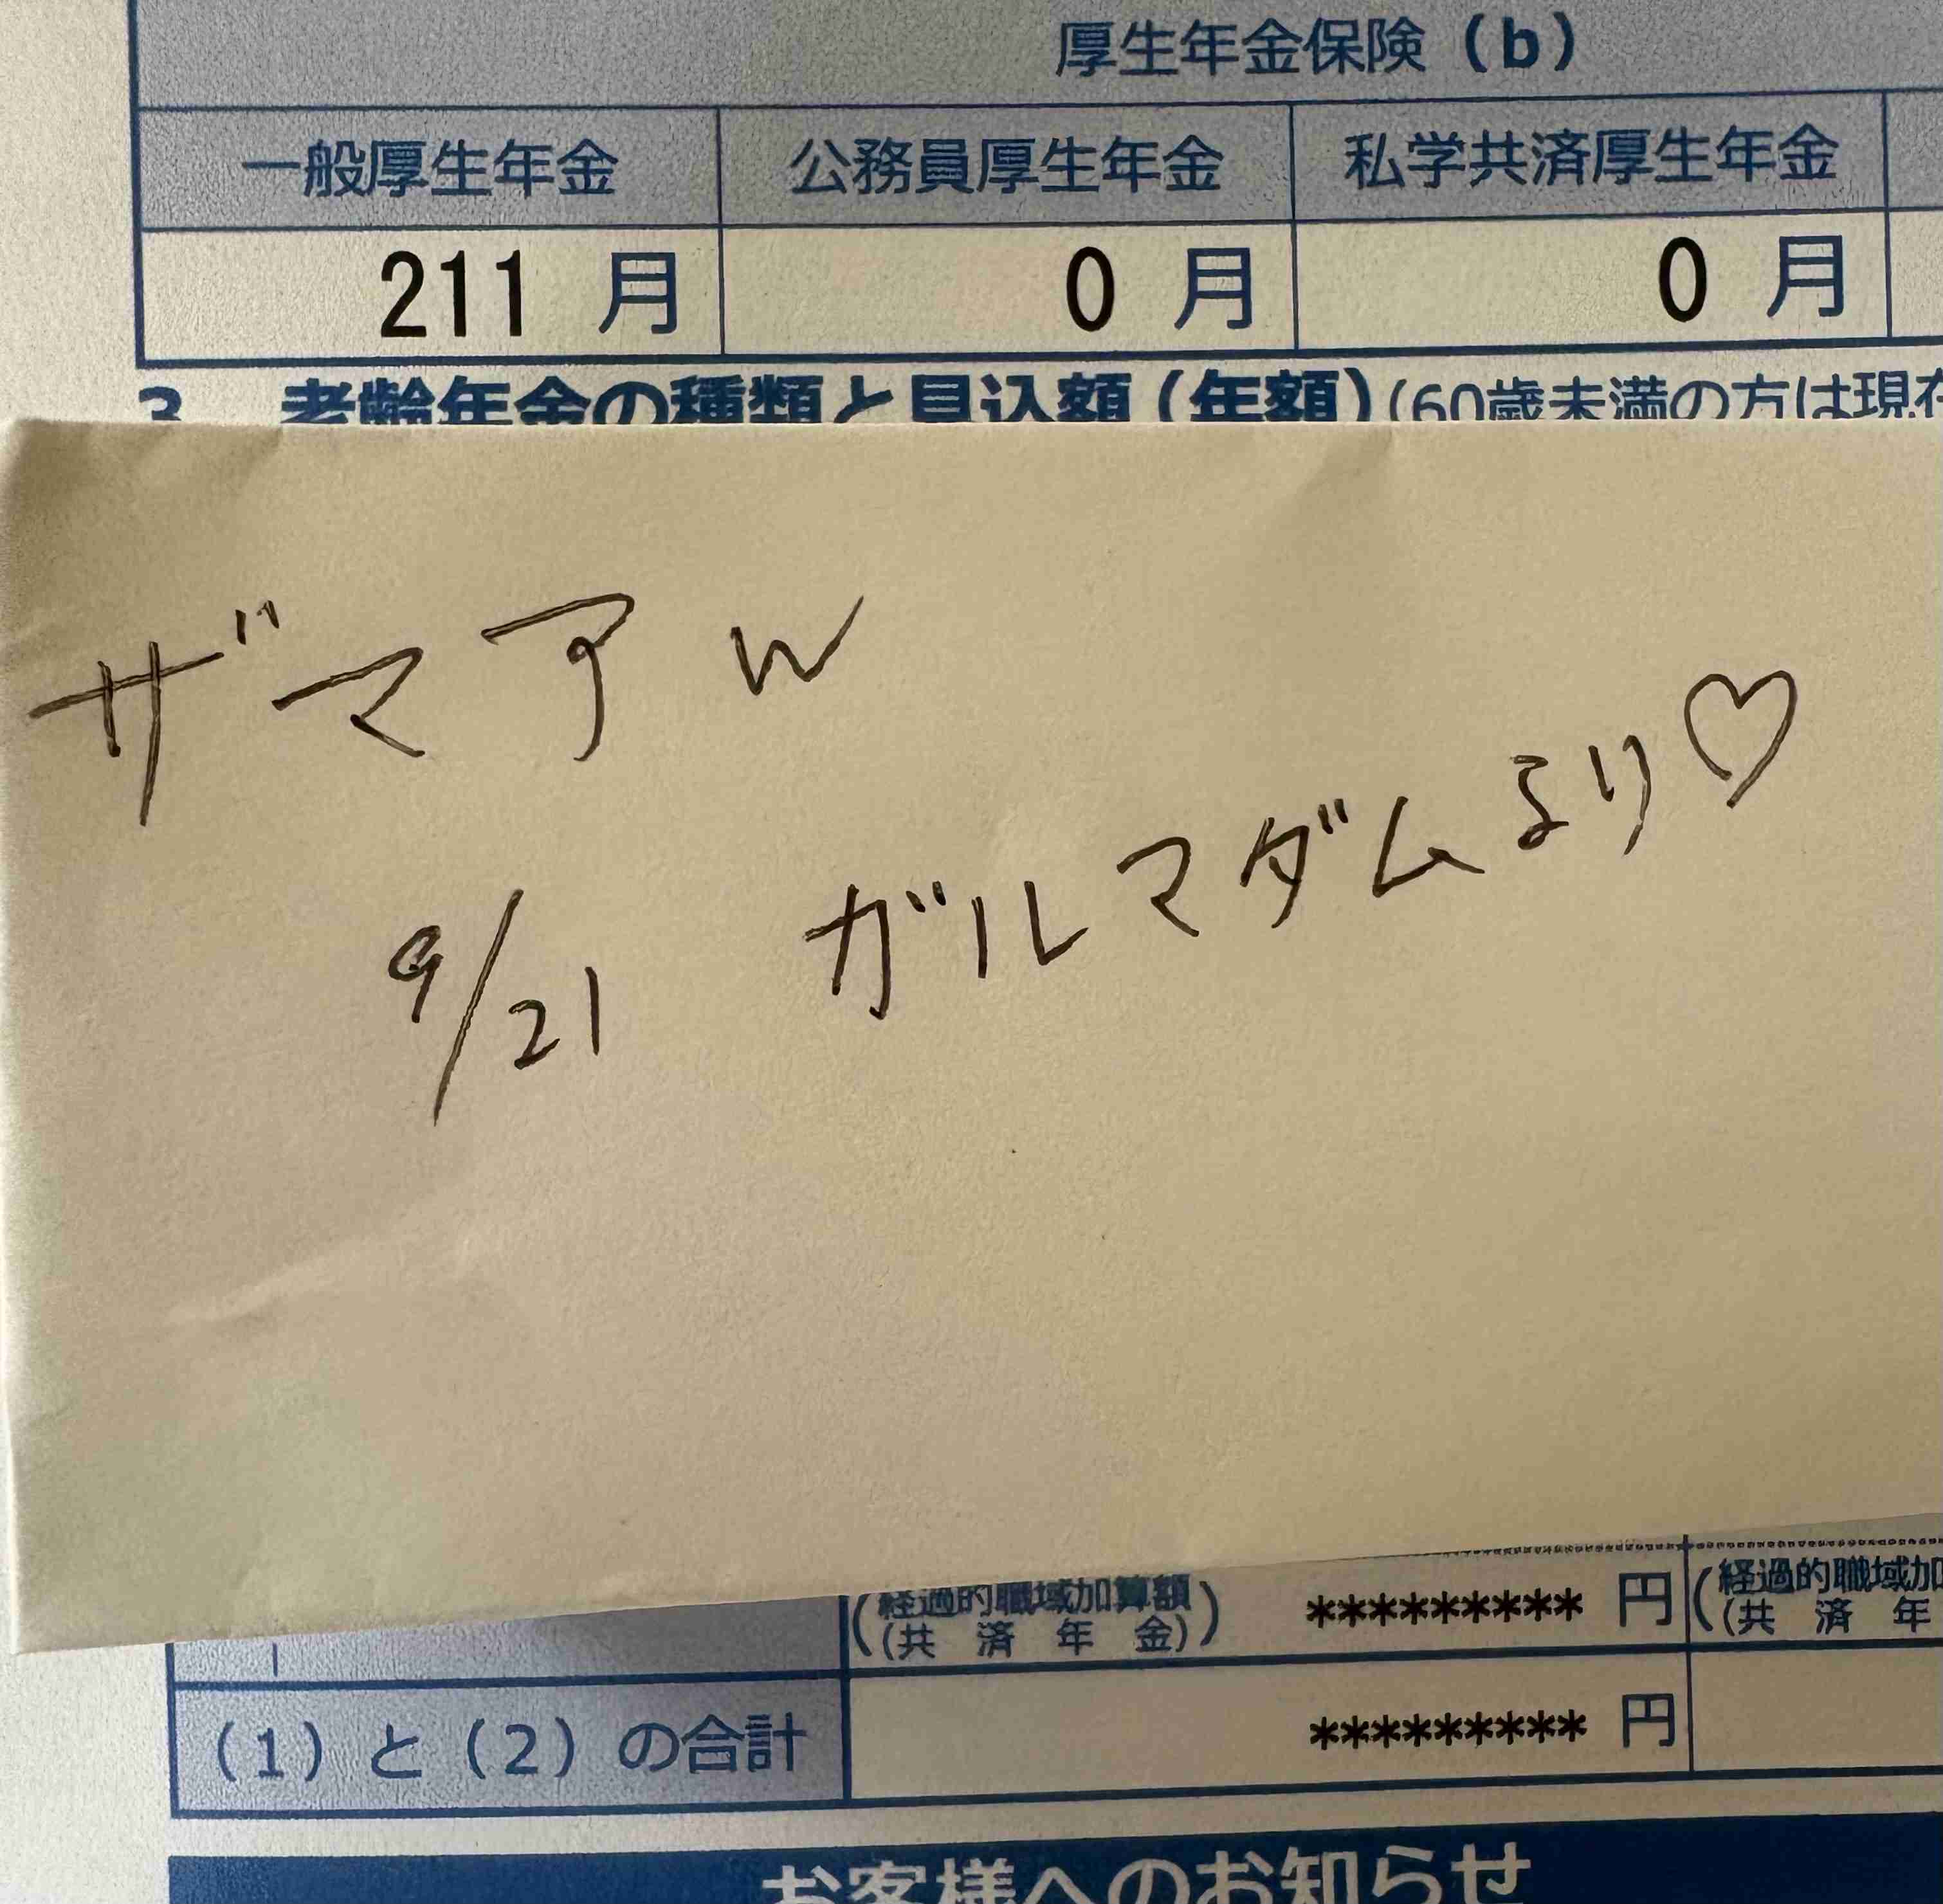 厚生年金保険（b）
一般厚生年金 公務員厚生年金 私学共済厚生年金
211 月 0 月 0 月
3 老齢年金の種類と見込額（年額）（60歳未満の方は現在
ザマアw
9/21 ガルマダムより♡
（経過的職域加算額 （共済年金）） ********* 円 （経過的職域加 （共済年
（1）と（2）の合計 ********* 円
お客様へのお知らせ